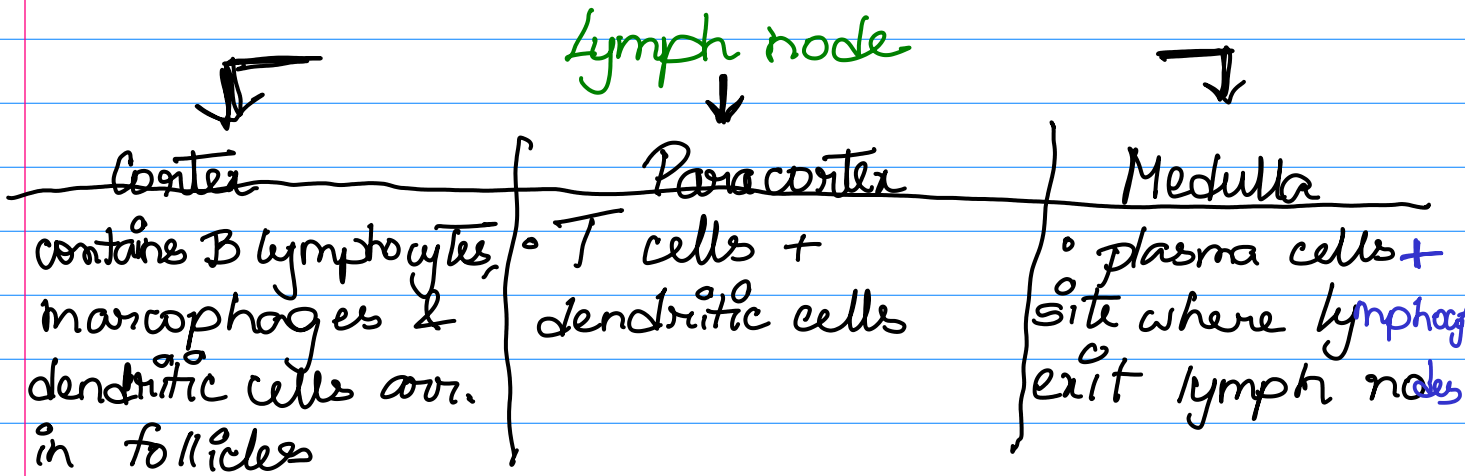 Lymph node
Cortex
Paracortex
Medulla
contains B lymphocytes,
marcophages &
dendritic cells arr.
in follicles
• T cells +
dendritic cells
• plasma cells +
site where lymphocy
exit lymph nodes